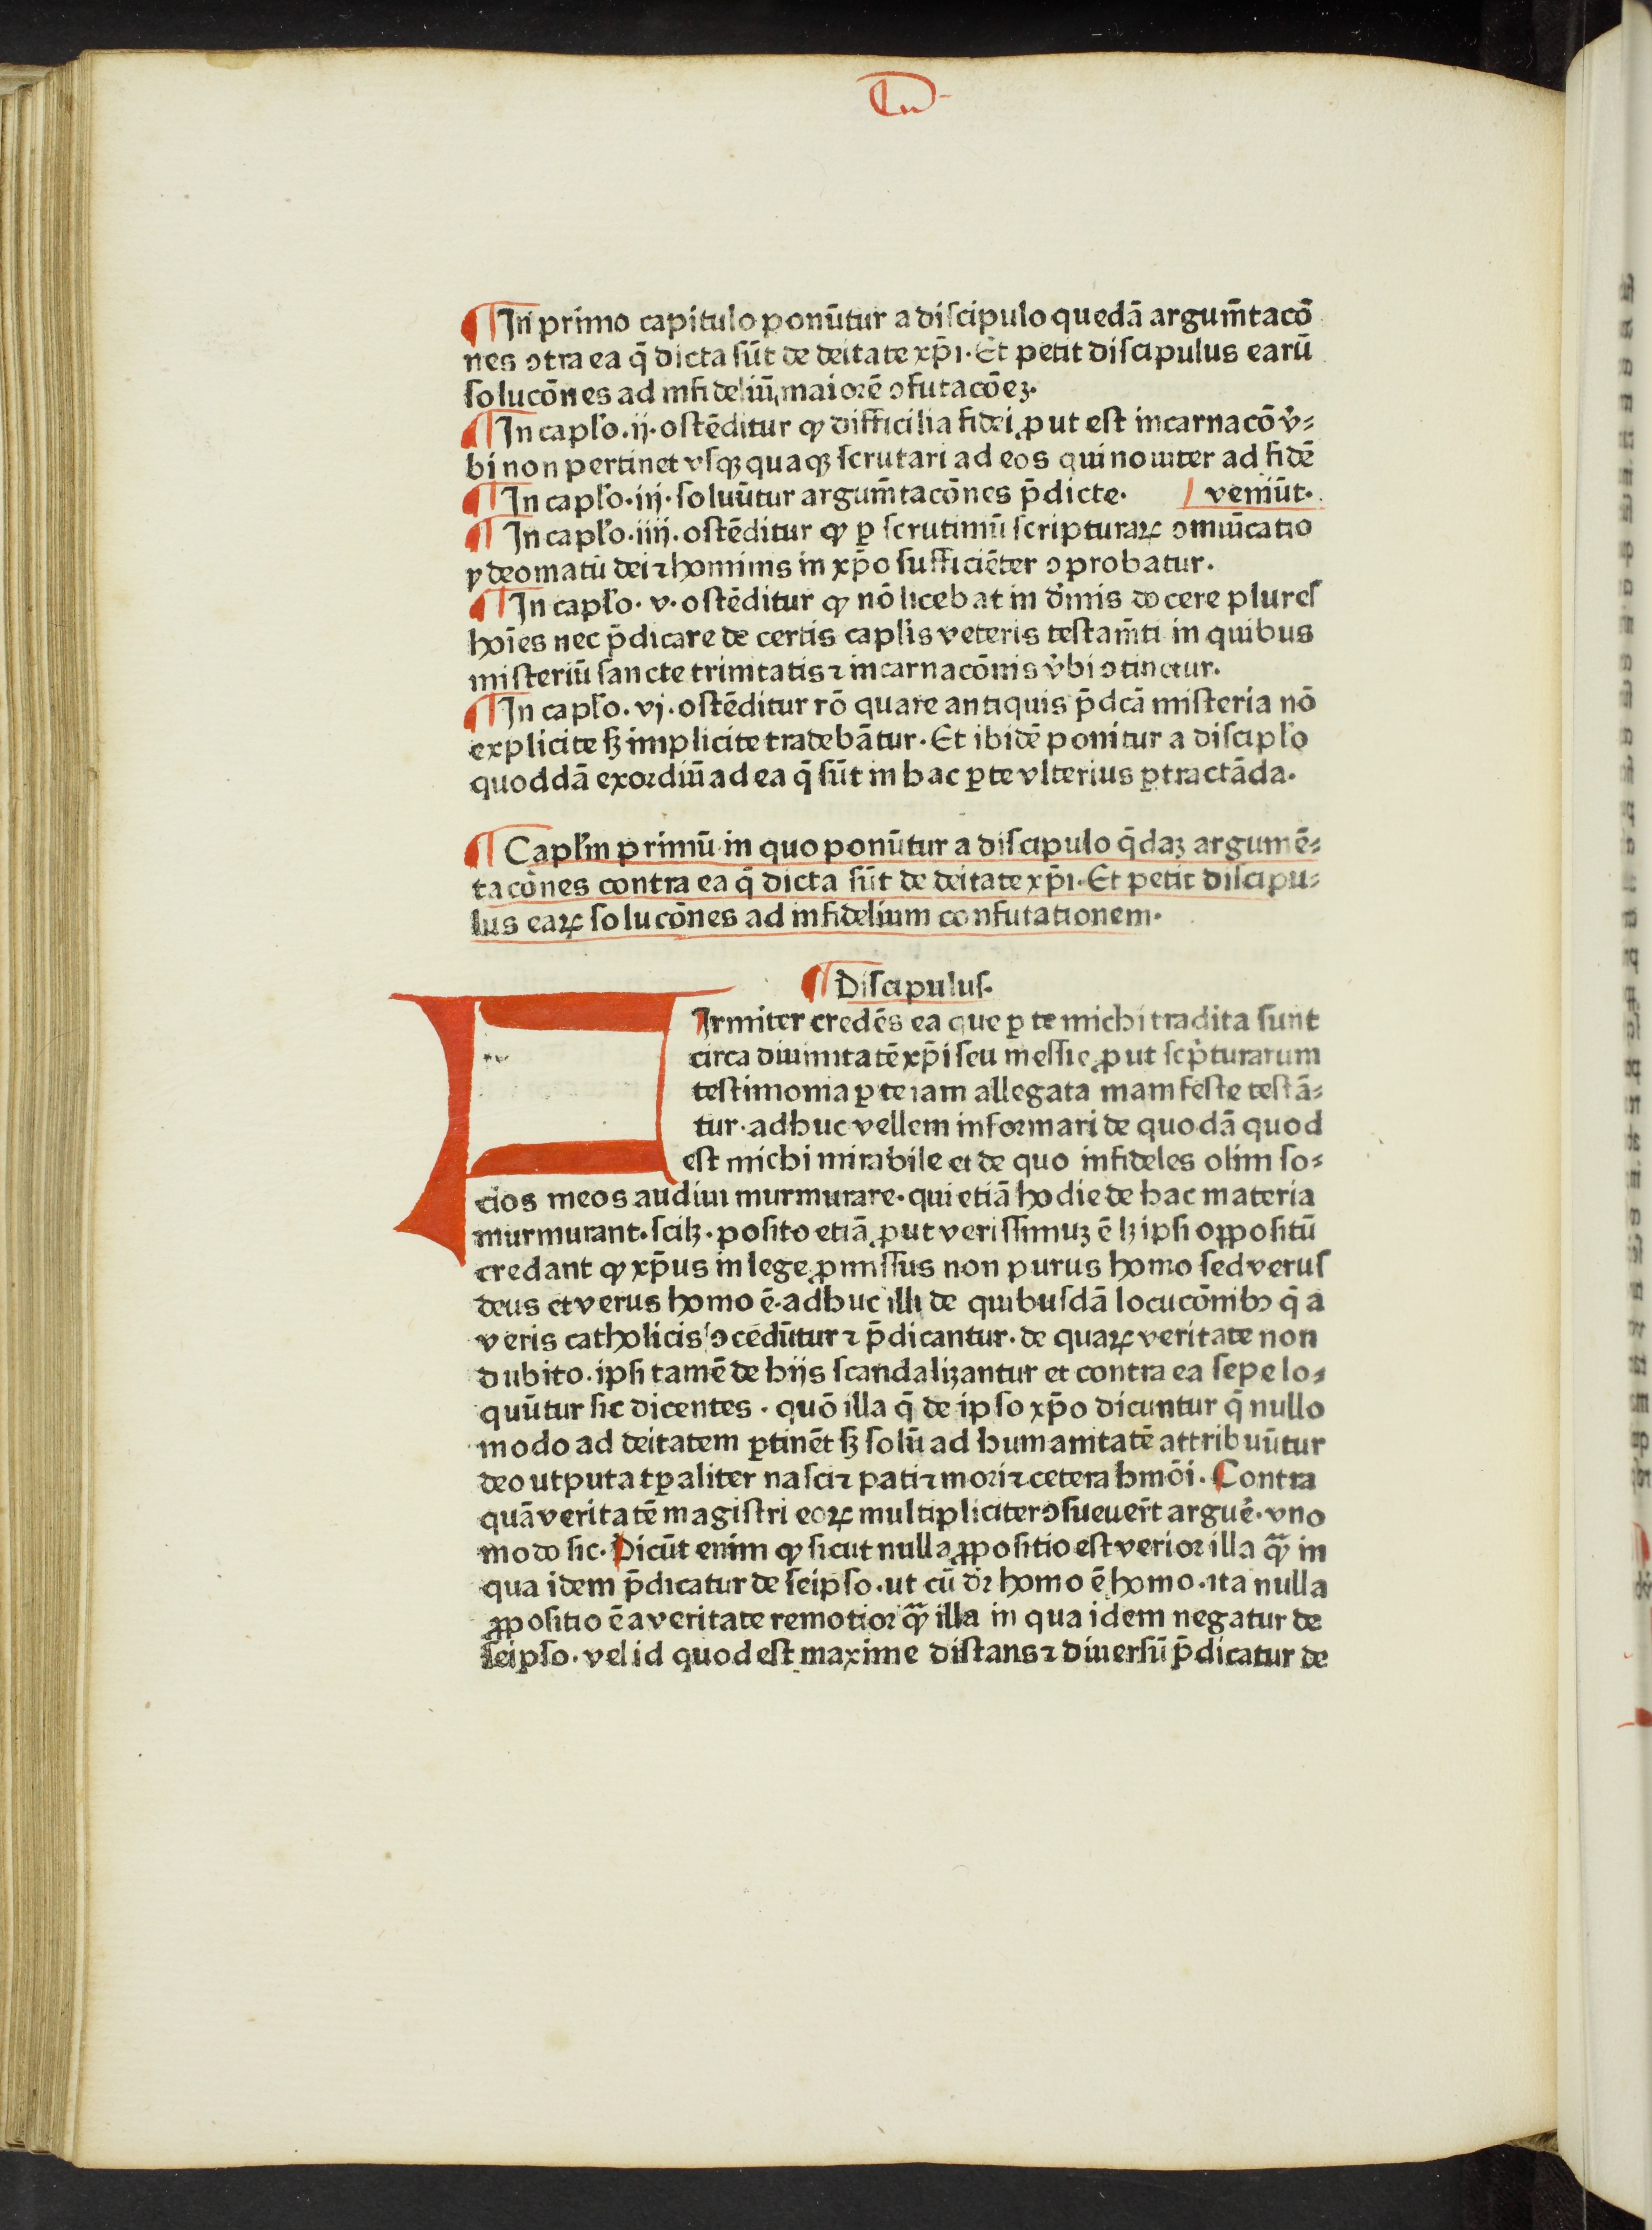 ¶ In primo capitulo ponūtur a diſcipulo quedā argum̄tacō
nes ↄtra ea q̄ dicta ſūt de deitate xp̄i. Et petit diſcipulus earū
ſolucōnes ad infideliū maiorē ↄfutacōeꝫ.
¶ In capl'o .ij. oſtēditur ꝙ difficilia fidei ꝓut eſt incarnacō v̓⸗
bi non pertinet vſqꝫquaqꝫ ſcrutari ad eos qui nouiter ad fidē
¶ In capl'o .iij. ſoluūtur argum̄tacōnes p̄dicte. veniūt.
¶ In capl'o .iiij. oſtēditur ꝙ ꝑ ſcrutiniū ſcripturaꝝ ↄmunicatio
ydeomatū dei ⁊ hominis in xp̄o ſufficiēter ↄprobatur.
¶ In capl'o .v. oſtēditur ꝙ nō licebat in d̓mis docere plureſ
hoīes nec p̄dicare de certis caplis veteris teſtam̄ti in quibus
miſteriū ſancte trinitatis ⁊ incarnacōnis v̓bi ↄtinetur.
¶ In capl'o .vj. oſtēditur rō quare antiquis p̄dcā miſteria nō
explicite ſꝫ implicite tradebātur. Et ibidē ponitur a diſcipl'o
quoddā exordiū ad ea q̄ ſūt in hac ꝑte vlterius ꝑtractāda.
¶ Capl'm primū in quo ponūtur a diſcipulo q̄daꝫ argumē⸗
tacōnes contra ea q̄ dicta ſūt de deitate xp̄i. Et petit diſcipu⸗
lus eaꝝ ſolucōnes ad infidelium confutationem.
¶ Diſcipuluſ.
FIrmiter credēs ea que ꝑ te michi tradita ſunt
circa diuinitatē xp̄i ſeu meſſie ꝓut ſcp̓turarum
teſtimonia ꝑ te iam allegata manifeſte teſtā⸗
tur. adhuc vellem informari de quodā quod
eſt michi mirabile et de quo infideles olim ſo⸗
cios meos audiui murmurare. qui etiā hodie de hac materia
murmurant. ſcilꝫ. poſito etiā ꝓut veriſſimuꝫ ē lꝫ ipſi oppoſitū
credant ꝙ xp̄us in lege ꝓmiſſus non purus homo ſed veruſ
deus et verus homo ē. adhuc illi de quibuſdā locucōnibꝰ q̄ a
veris catholicis ↄcedūtur ⁊ p̄dicantur. de quaꝝ veritate non
dubito. ipſi tamē de hijs ſcandalizantur et contra ea ſepe lo⸗
quūtur ſic dicentes. quō illa q̄ de ipſo xp̄o dicuntur q̄ nullo
modo ad deitatem ꝑtinēt ſꝫ ſolū ad humanitatē attribuūtur
deo utputa tꝑaliter naſci ⁊ pati ⁊ mori ⁊ cetera hmōi. Contra
quā veritatē magiſtri eoꝝ multipliciter ↄſueuer̄t argue̓. vno
modo ſic. Dicūt enim ꝙ ſicut nulla ꝓpoſitio eſt verior illa qᷓꝫ in
qua idem p̄dicatur de ſeipſo. ut cū dr̄ homo ē homo. ita nulla
ꝓpoſitio ē a veritate remotior qᷓꝫ illa in qua idem negatur de
ſeipſo. vel id quod eſt maxime diſtans ⁊ diuerſū p̄dicatur de